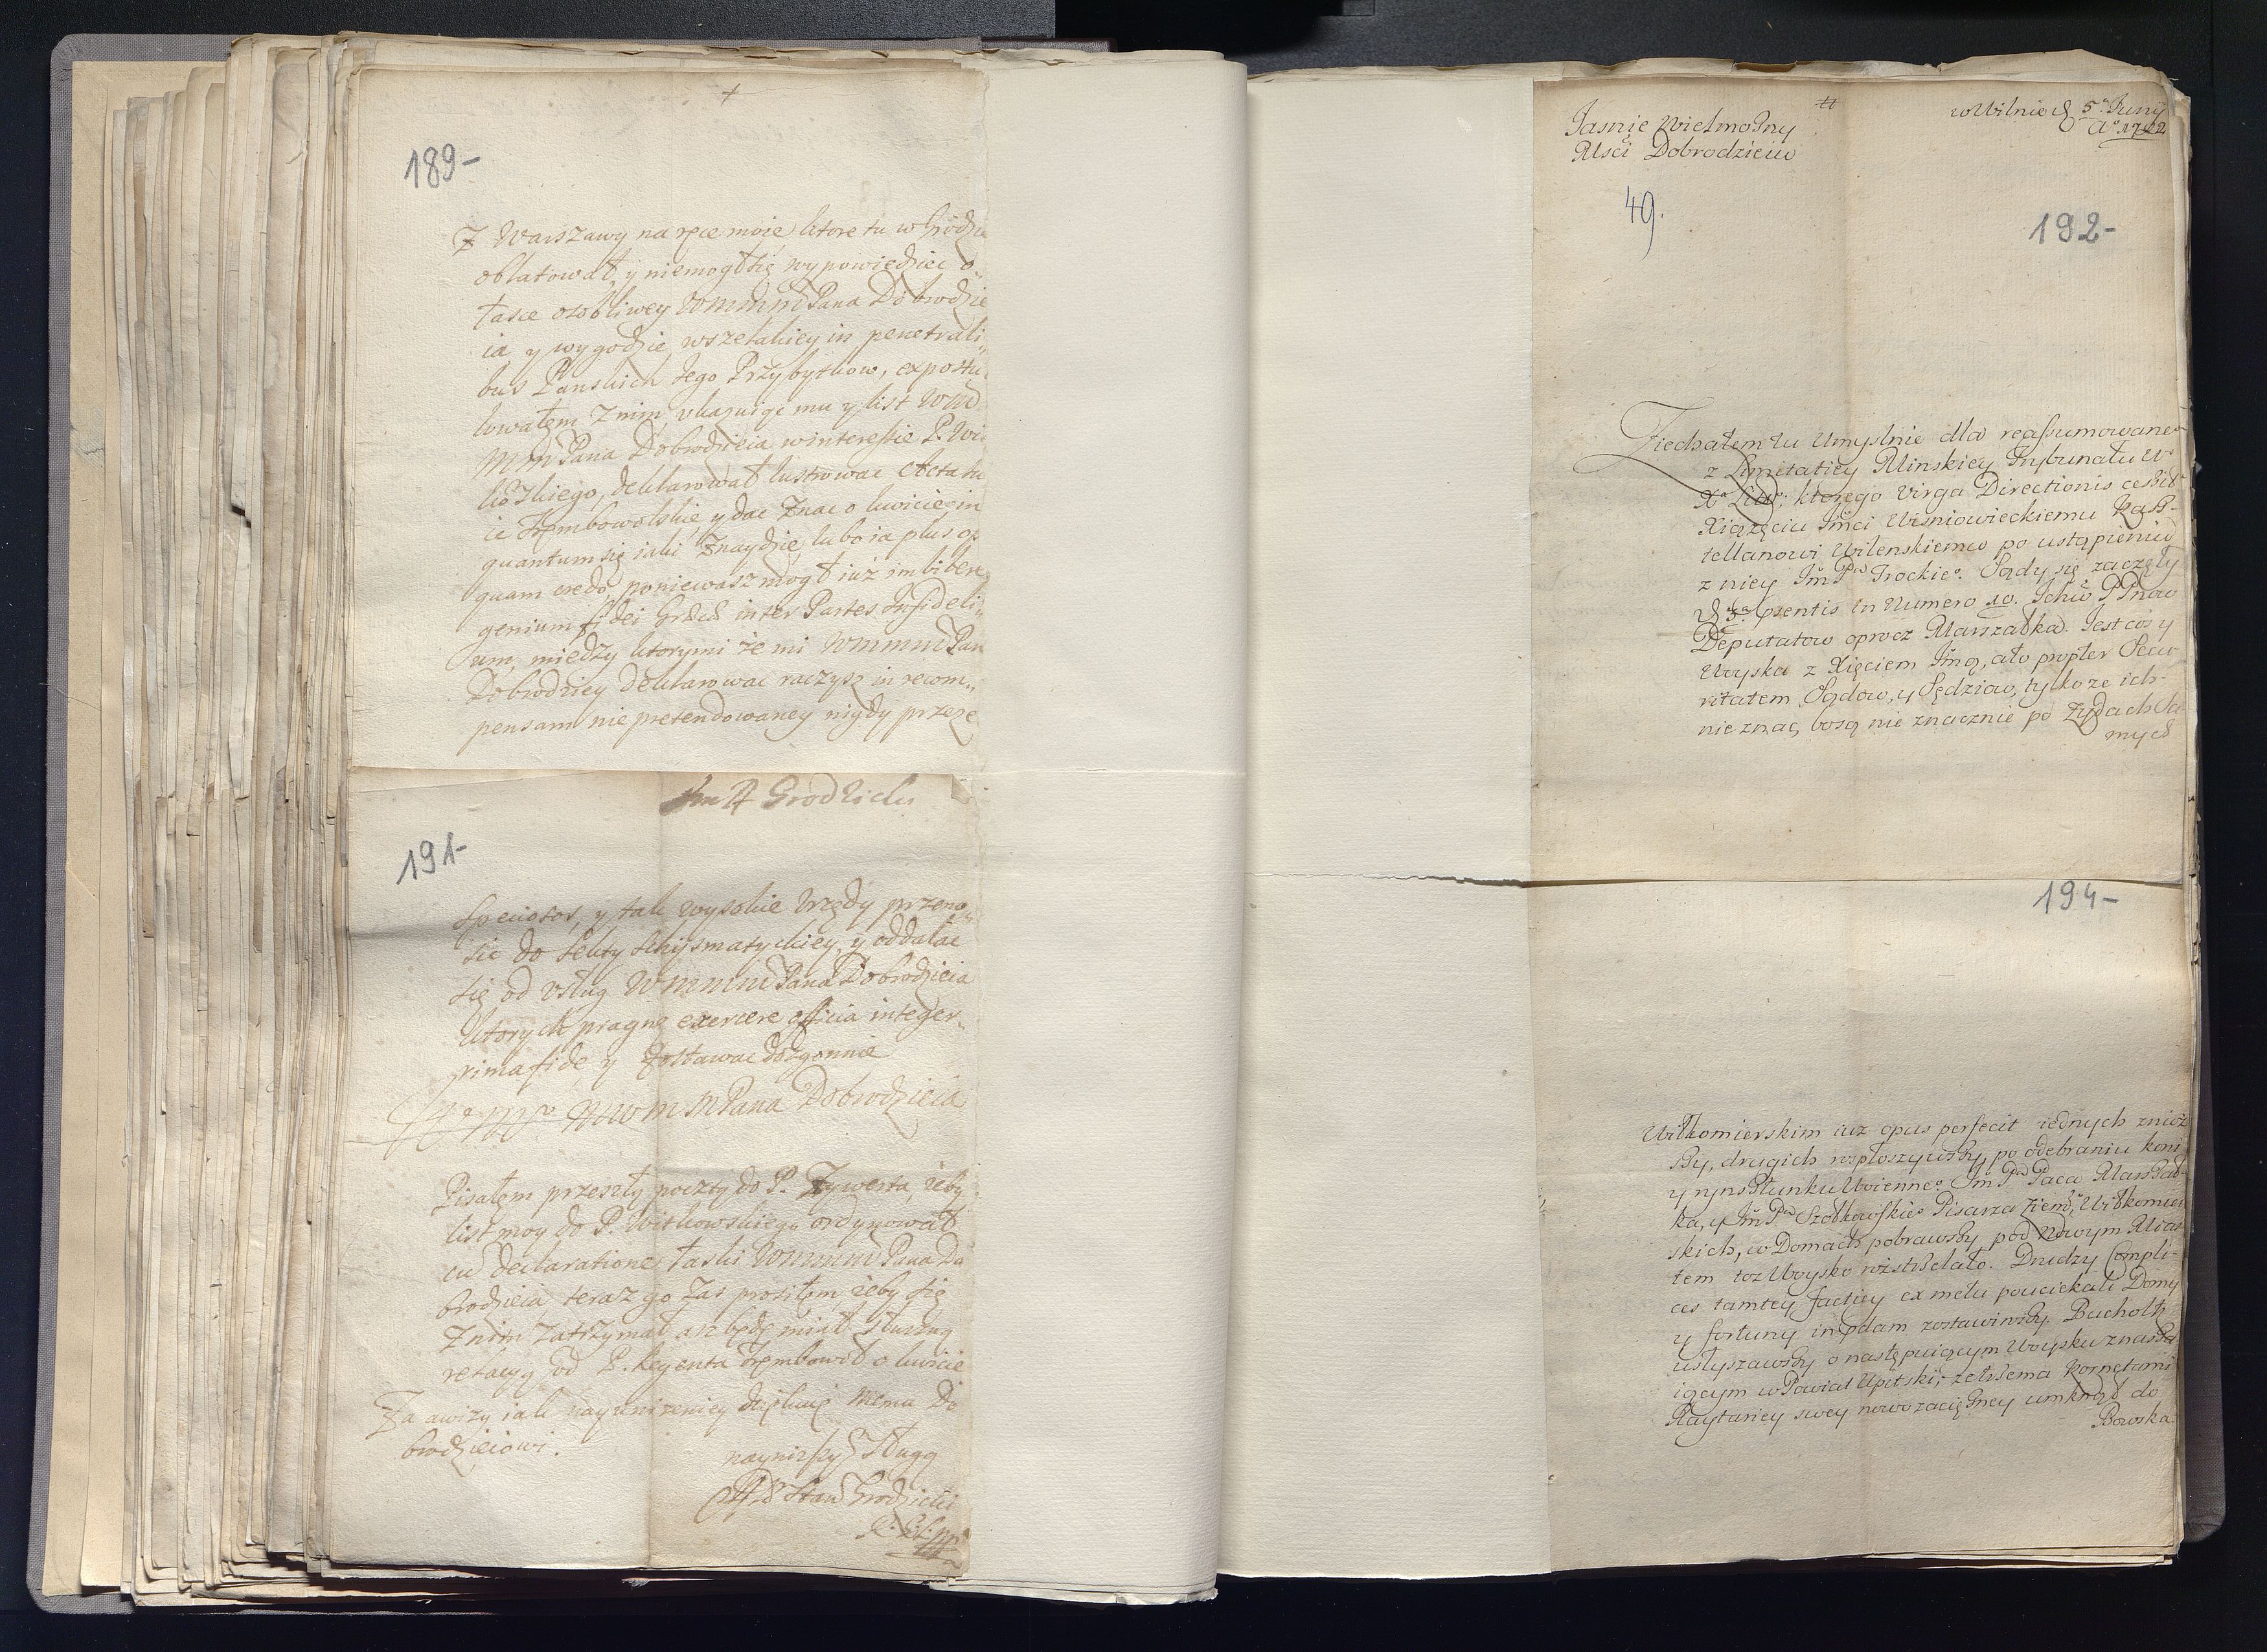 +
189-
Z Warszawy na ręce moie ktore tu w Grodzie
oblatował, y niemogł się wypowiedziec o
łasce osobliwey WMMMPana Dobrodzie
ia y wygodzie wszelakiey in penetrali,,
bus Panskich Jego Przybytkow, expostu,,
lowałem z nim ukazuiąc mu y list WM
MMPana Dobrodzieia w interessie P. Wit
kowskiego, deklarował lustrowac Acta
ie Trembowolskie y dac znac o kwicie in
quantum się iaki znaydzie, lubo ia plus op
quam credo, poniewasz mogł iuż imbibere
genium fidei Graecae inter Partes Infideli,,
um, między ktorymi że mi WMMMPan
Dobrodziey deklarowac raczysz in recom,,
pensam nie pretendowaney nigdy przeze
JmP Grodzicki
191-
speciosos, y tak wysokie Urzędy przeno,,
sic do sekty schijsmatyckiey, y oddalac
się od usług WMMMPana Dobrodzieia
ktorych pragnę exercere officia integer,,
rima fide y zostawac dozgonnie
WMMPana Dobrodzieia
Pisałem przeszłą pocztą do P. Zywerta żeby
list moy do P. Witkowskiego ordynował
cu declaratione łaski WMMMPana Do
brodzieia, teraz go zas prosiłem żeby się
z nim zatrzymał asz będę miał słuszną
relacyą od P. Regenta Trembowol o kwicie
Za awizy iak nayunizeniey dziękuię Memu Do
brodzieiowi.
naynizszy Sługa
Staw Grodzicki
192-
Jasnie Wielmożny
Msci Dobrodzieiu
w Wilnie d 5. Junij
Ao 1702
49.
Ziechałem tu Umyslnie dla reassumowane°
z Limitatiey Minskiey Trybunału W°
X° Litt°: ktorego Virga Directionis cessit
Xiążęciu Jmci Wisniowieckiemu Kasz-
tellanowi Wilenskiemu po ustąpieniu
z niey Jm Pa Trockie°. Sądy się zaczęły
d 3a psentis in Numero 10. Ichm PPnow
Deputatow oprocz Marszałka. Jest cos y
Woyska z Xięciem Jmą, a to propter Secu
ritatem Sądow, y Sędziow, tylko ze ich-
nie znac, bo są nie znacznie po Zydach sa
mych
194-
Wiłkomierskim iuz opus perfecit iednych znioz
szy, drugich rosploszywszy, po odebraniu koni
y rynsztunku Woienne° Jm Pa Paca Marszał-
ka, y Jm Pa Pisarza Ziem: Wiłkomier
skich, w Domach pobrawszy pod Nowym Mias
tem toz Woysko rozstrzelało. Drudzy Compli-
ces tamtey factiey ex metu pouciekali Domy
y fortuny in pdam zostawiwszy. Bucholtz
usłyszawszy o następuiącym Woysku znasza
iącym w Powiat Upitski, z trzema Kornetami
Raytariey swey nowozaciężney umknął do
Bowska